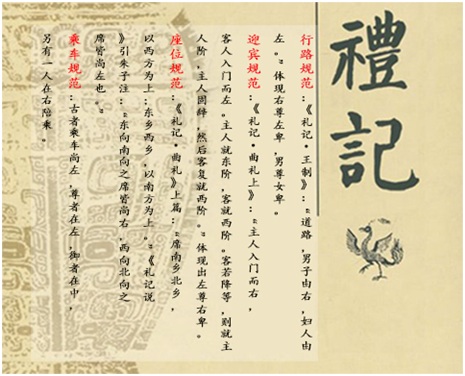 禮記
行路规范:《礼记•王制》:“道路,男子由右,妇人由
左。”体现右尊左卑,男尊女卑。
迎宾规范:《礼记•曲礼上》:“主人入门而右,
客人入门而左。主人就东阶,客就西阶。客若降等,则就主
人阶,主人固辞,然后客复就西阶。”体现出左尊右卑。
座位规范:《礼记•曲礼》上篇:“席南乡北乡,
以西方为上;东乡西乡,以南方为上。”《礼记说
》引朱子注:“东向南向之席皆尚右,西向北向之
席皆尚左也。”
乘车规范:古者乘车尚左,尊者在左,御者在中,
另有一人在右陪乘。